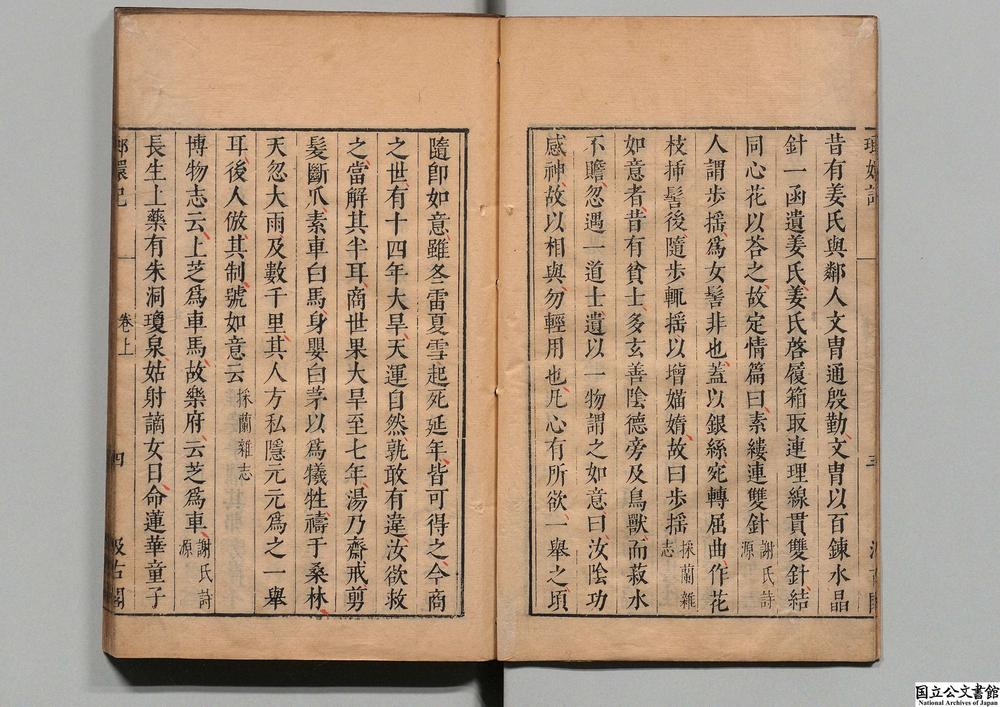 昔有姜氏與鄰人文胄通殷勤文胄以百鍊水晶
針一函遺姜氏姜氏啓履箱取連理線貫雙針結
同心花以荅之故定情篇曰素縷連雙針謝氏詩源
人謂歩揺爲女髻非也蓋以銀絲宛轉屈曲作花
枝揷髻後隨歩輒揺以增媌媠故曰歩揺採蘭雜志
如意者昔有貧士多玄善陰德旁及鳥獸而菽水
不贍忽遇一道士遺以一物謂之如意曰汝陰功
感神故以相與勿輕用也凡心有所欲一舉之頃
隨卽如意雖冬雷夏雪起死延年皆可得之今商
之世有十四年大旱天運自然孰敢有違汝欲救
之當解其半耳商世果大旱至七年湯乃齋戒剪
髮斷爪素車白馬身嬰白茅以爲犠牲禱于桑林
天忽大雨及數千里其人方私隱元元爲之一舉
耳後人倣其制號如意云採蘭雜志
博物志云上芝爲車馬故樂府云芝爲車謝氏詩源
長生上藥有朱洞瓊泉姑射謫女日命蓮華童子
卷上
四
汲古閣
國立公文書館
National Archives of Japan